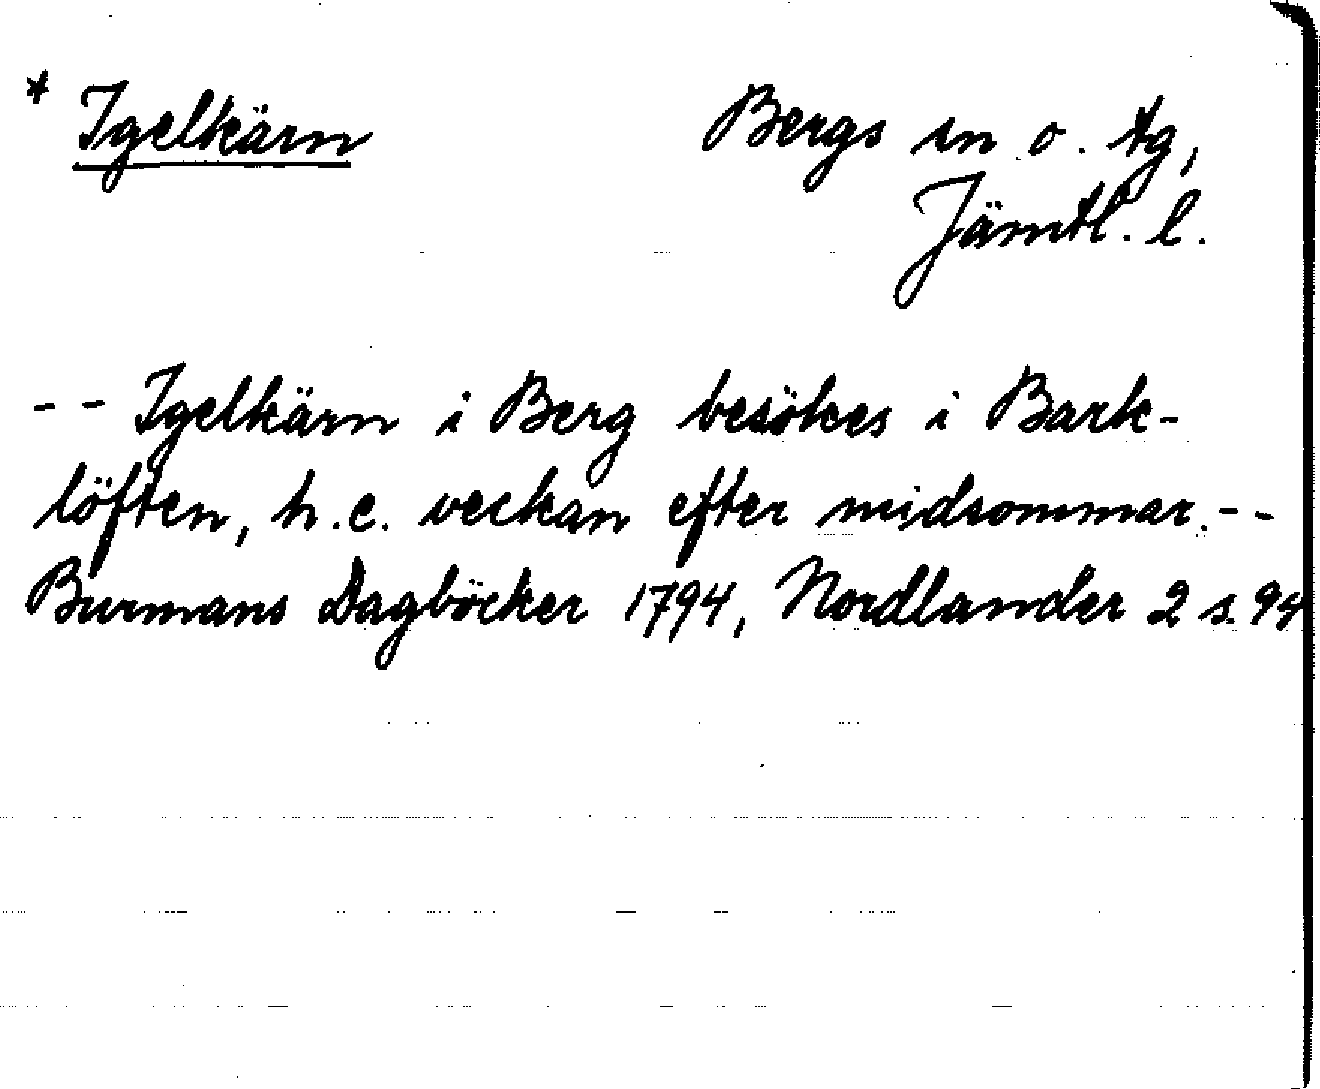 * Igelkärn Bergs sn o. tg,
Jämtl. l.
-- Igelkärn i Berg besökes i Bark-
löften, h.e. veckan efter midsommar.--
Burmans Dagböcker 1794, Nordlander 2 s. 94